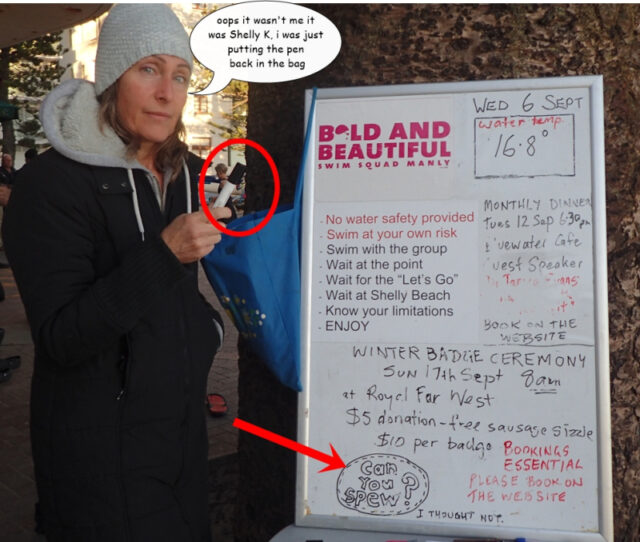 oops it wasn't me it
was Shelly K, i was just
putting the pen
back in the bag
WED 6 SEPT
water temp
16.8°
BOLD AND
BEAUTIFUL
SWIM SQUAD MANLY
- No water safety provided
- Swim at your own risk
- Swim with the group
- Wait at the point
- Wait for the "Let's Go"
- Wait at Shelly Beach
- Know your limitations
- ENJOY
MONTHLY DINNER
Tues 12 Sep 6:30pm
Cafe
Speaker
BOOK ON THE
WEBSITE
WINTER BADGE CEREMONY
SUN 17th Sept 8am
at Royal Far West
$5 donation - free sausage sizzle
$10 per badge BOOKINGS
ESSENTIAL
PLEASE BOOK ON
THE WEBSITE
can
you
spew?
I THOUGHT NOT.